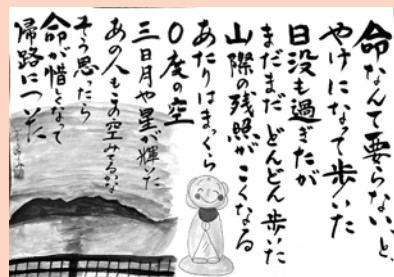 命なんて要らない、と
やけになって歩いた
日没も過ぎたが
まだまだ どんどん歩いた
山際の残照がこくなる
あたりはまっくら
〇度の空
三日月や星が輝いた
あの人もこの空みてるかな
そう思ったら
命が惜しくなって
帰路についた